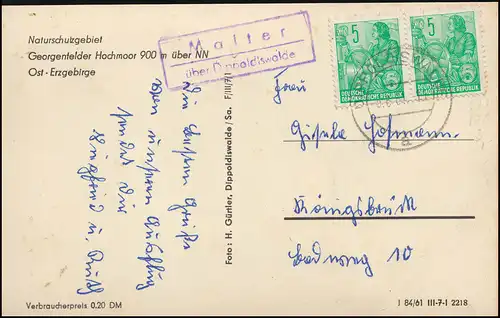 Naturschutzgebiet
Georgenfelder Hochmoor 900 m über NN
Ost-Erzgebirge
Malter
über Dippoldiswalde
5
DEUTSCHE
DEMOKRATISCHE REPUBLIK
5
DEUTSCHE
DEMOKRATISCHE REPUBLIK
a
Die besten Grüße
von unserem Ausflug
sendet Dir
Siegfried u. Ruth
Foto: H. Gürtler, Dippoldiswalde/Sa. F/III/7/1
Frau
Gisela Hofmann
Königsbrück
Badweg 10
Verbraucherpreis 0.20 DM
I 84/61 III-7-1 2218